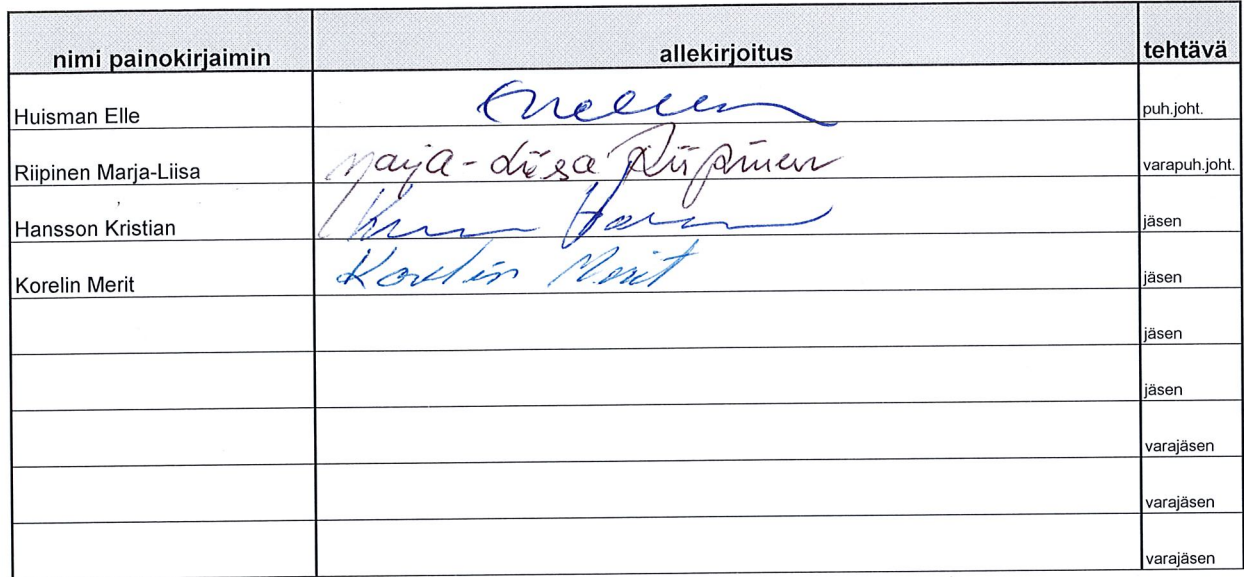 nimi painokirjaimin allekirjoitus tehtävä
Huisman Elle puh.joht.
Riipinen Marja-Liisa Marja-Liisa Riipinen varapuh.joht.
Hansson Kristian jäsen
Korelin Merit Korelin Merit jäsen
jäsen
jäsen
varajäsen
varajäsen
varajäsen